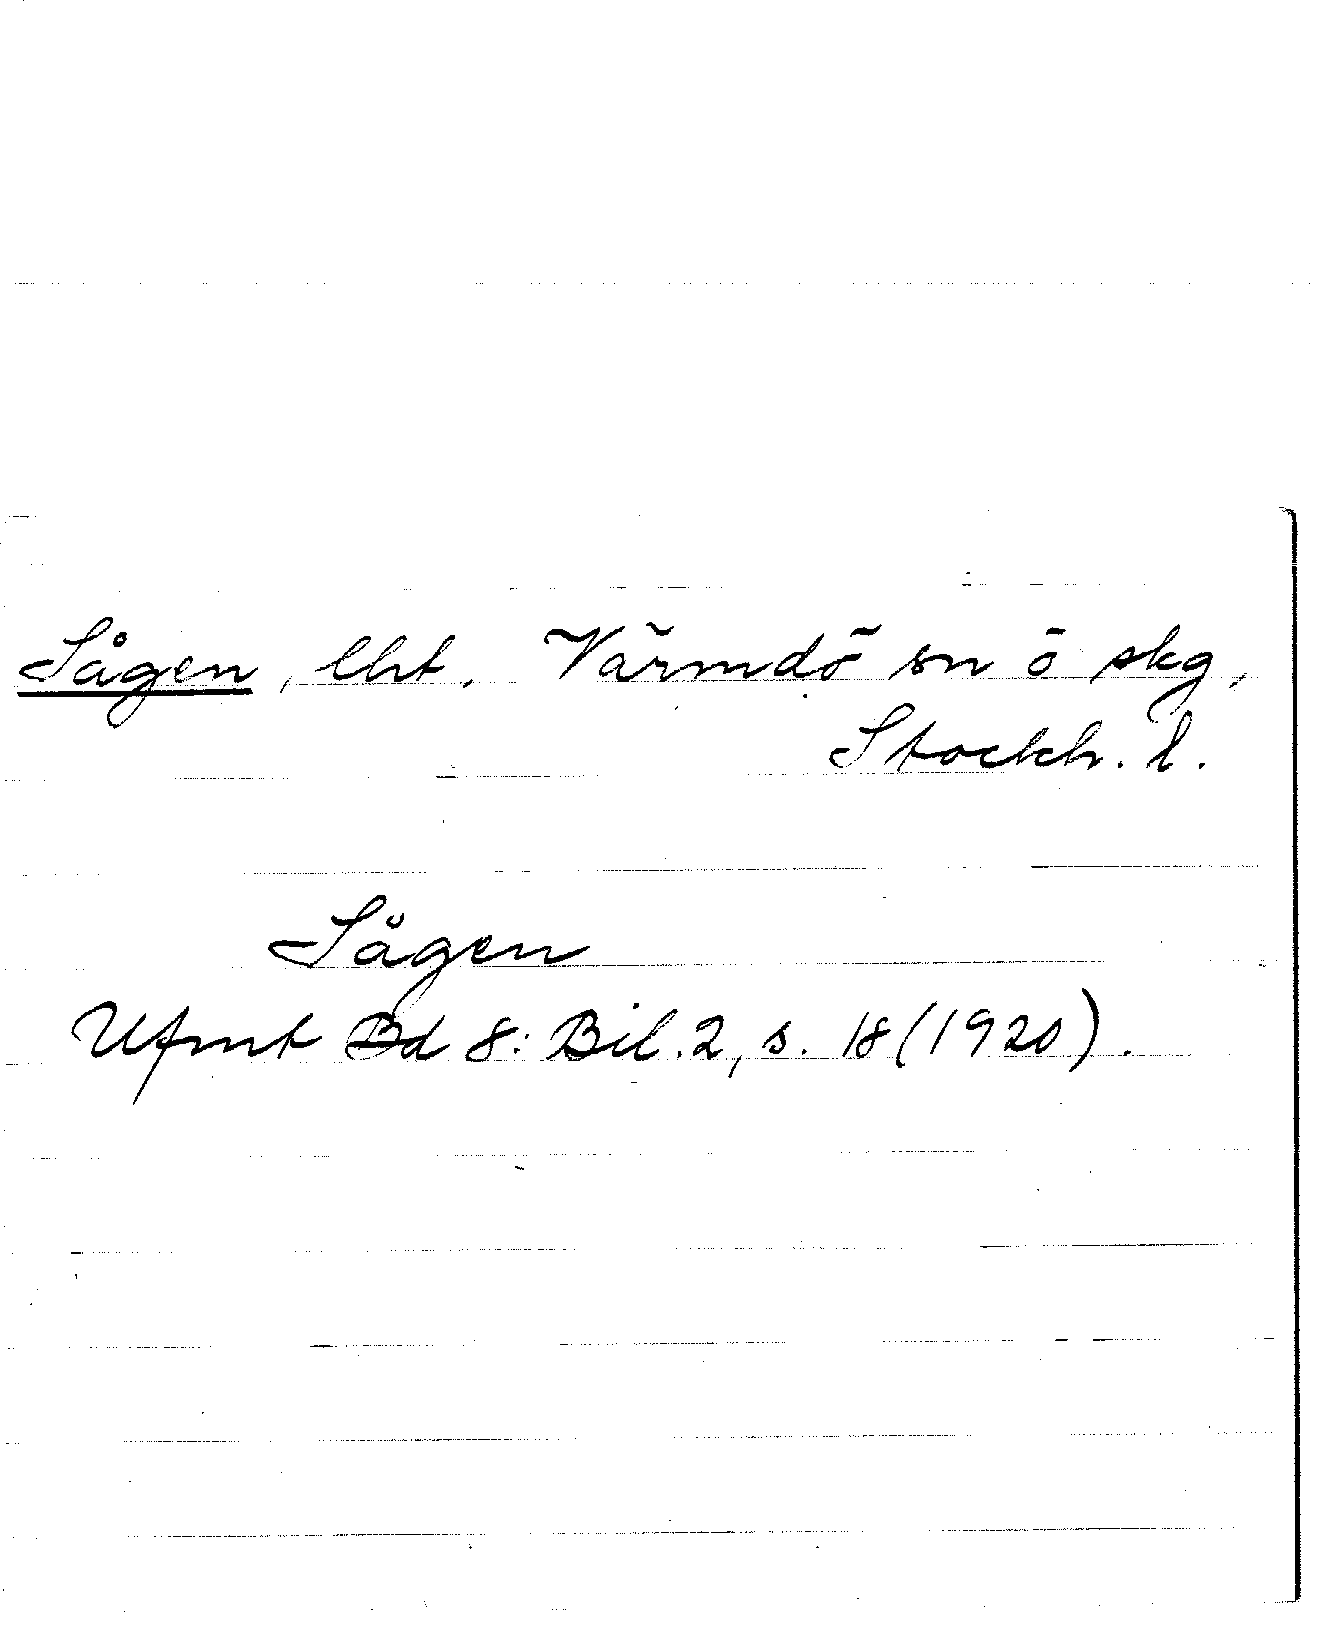 Sågen, lht. Värmdö sn ö skg,
Stockh. l.
Sågen
Ufmt Bd 8: Bil. 2, s. 18 (1920).